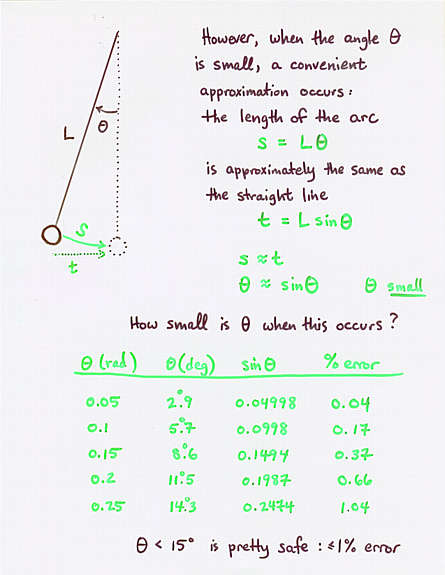 However, when the angle θ
is small, a convenient
approximation occurs:
the length of the arc
s = Lθ
is approximately the same as
the straight line
t = L sinθ
s ≈ t
θ ≈ sinθ θ small
L
θ
s
t
How small is θ when this occurs?
θ (rad) θ (deg) sinθ % error
0.05 2.°9 0.04998 0.04
0.1 5.°7 0.0998 0.17
0.15 8.°6 0.1494 0.37
0.2 11.°5 0.1987 0.66
0.25 14.°3 0.2474 1.04
θ < 15° is pretty safe : ≤1% error